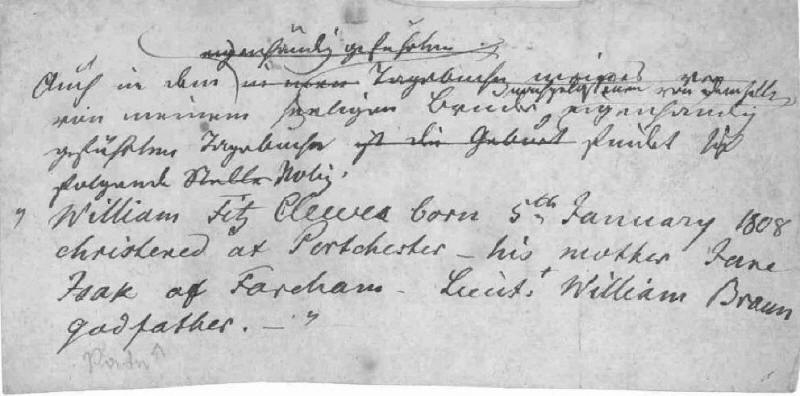 eigenhändig geführten
Auch in dem innern Tagebuche meines ver
nachgelassenen von demselb
von meinem seeligen Bruder eigenhändig
geführten Tagebuche ist die Geburt findet sich
folgende Stelle Notiz.
" William Fitz Clewes born 5th January 1808
christened at Portchester – his mother Jane
Isak of Fareham – Lieut.t William Braun
godfather. – "